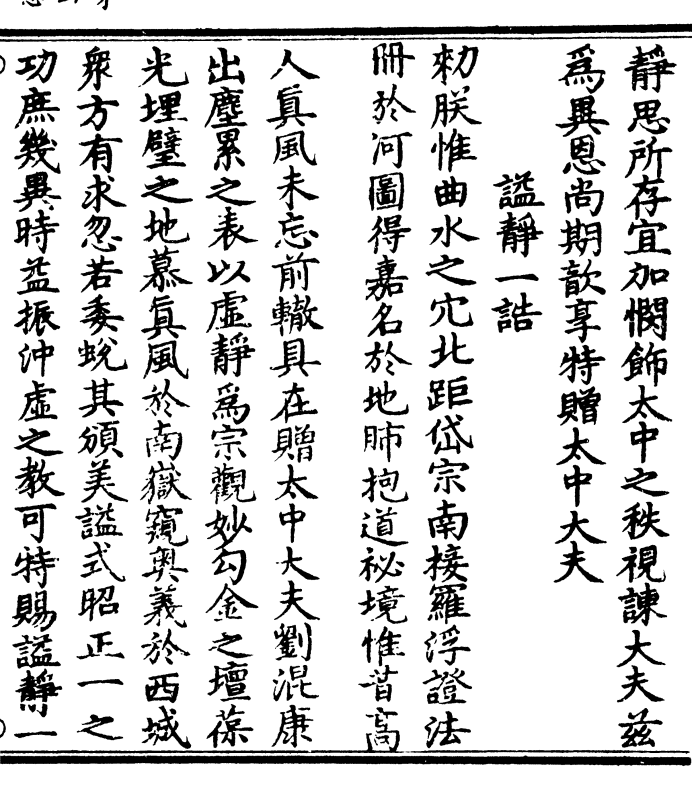 靜思所存宜加憫飾太中之秩視諫大夫茲
爲異恩尚期歆享特贈太中大夫
謚靜一誥
勑朕惟曲水之穴北距岱宗南接羅浮證法
冊於河圖得嘉名於地肺抱道祕境惟昔高
人眞風未忘前轍具在贈太中大夫劉混康
出塵累之表以虛靜爲宗觀妙勾金之壇葆
光埋璧之地慕眞風於南嶽窺奥義於西城
衆方有求忽若委蛻其頒美謚式昭正一之
功庶幾異時益振沖虛之教可特賜謚靜一